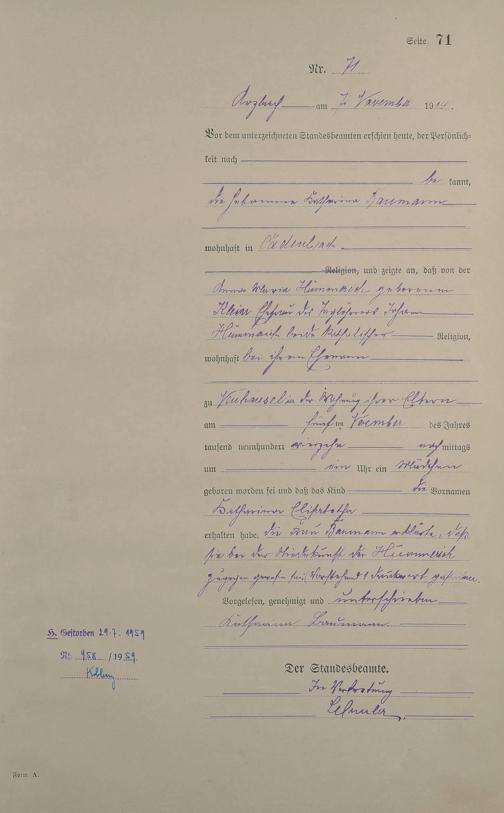 Seite 71
Nr. 71
Arzbach am 7. November 1914.
Vor dem unterzeichneten Standesbeamten erschien heute, der Persönlich-
keit nach
be kannt,
die Hebamme Katharina Baumann
wohnhaft in Cadenbach
Religion, und zeigte an, daß von der
Anna Maria Hümmerich geborenen
Klein Ehefrau des Taglöhners Johann
Hümmerich beide katholischer Religion,
wohnhaft bei ihrem Ehemann
zu Neuhäusel in der Wohnung ihrer Eltern
am fünften November des Jahres
tausend neunhundert vierzehn nachmittags
um ein Uhr ein Mädchen
geboren worden sei und daß das Kind die Vornamen
Katharina Elisabetha
erhalten habe. Die Frau Baumann erklärte, daß
sie bei der Niederkunft der Hümmerich
zugegen gewesen sei. Vorstehend 1 Druckwort gestrichen.
Vorgelesen, genehmigt und unterschrieben
Katharina Baumann
H. Gestorben 29.7.1959
Nr. 958 /1959.
Der Standesbeamte.
In Vertretung
Form A.